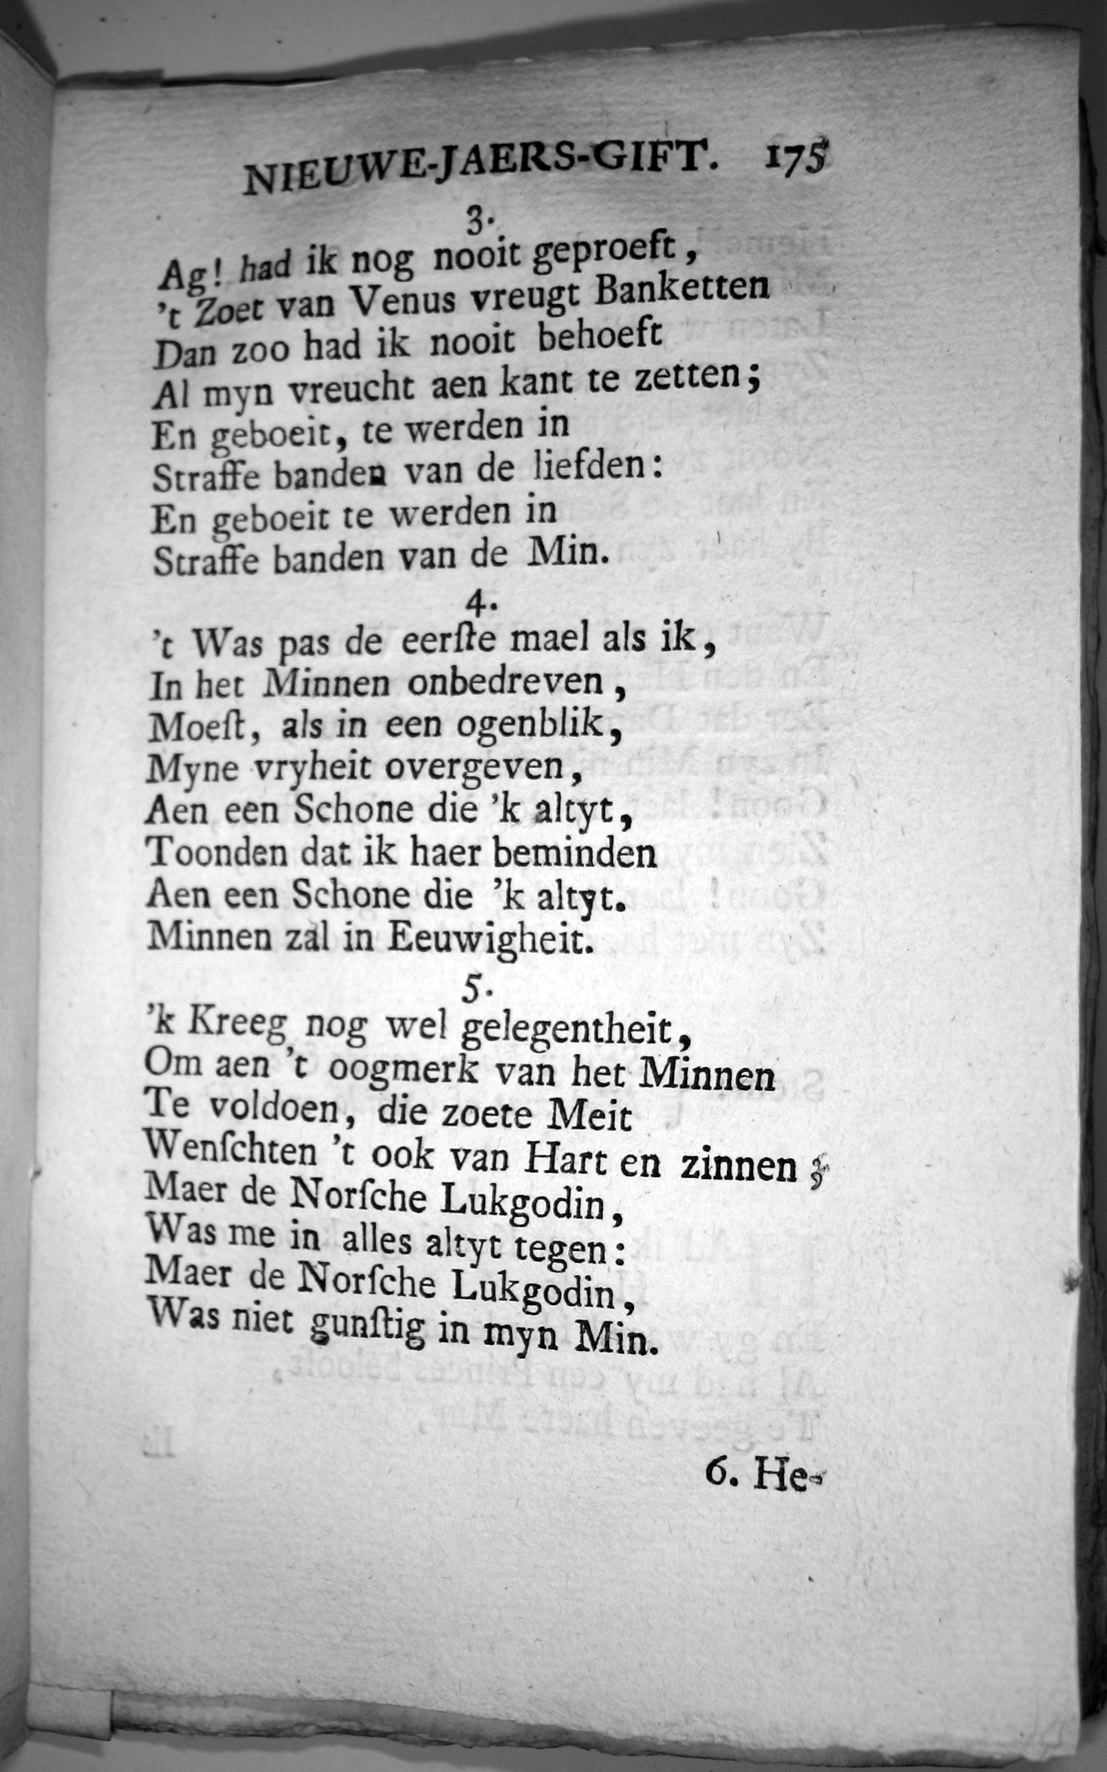 NIEUWE-JAERS-GIFT. 175
3.
Ag! had ik nog nooit geproeft,
't Zoet van Venus vreugt Banketten
Dan zoo had ik nooit behoeft
Al myn vreucht aen kant te zetten;
En geboeit, te werden in
Straffe banden van de liefden:
En geboeit te werden in
Straffe banden van de Min.
4.
't Was pas de eerſte mael als ik,
In het Minnen onbedreven,
Moeſt, als in een ogenblik,
Myne vryheit overgeven,
Aen een Schone die 'k altyt,
Toonden dat ik haer beminden
Aen een Schone die 'k altyt.
Minnen zal in Eeuwigheit.
5.
'k Kreeg nog wel gelegentheit,
Om aen 't oogmerk van het Minnen
Te voldoen, die zoete Meit
Wenſchten 't ook van Hart en zinnen;
Maer de Norſche Lukgodin,
Was me in alles altyt tegen:
Maer de Norſche Lukgodin,
Was niet gunſtig in myn Min.
6. He-